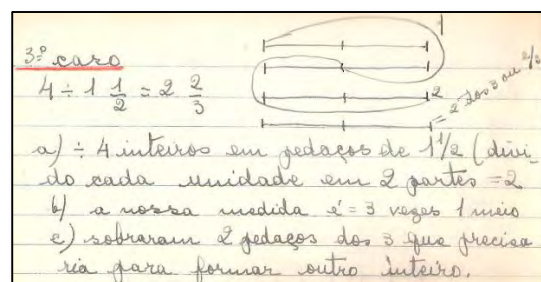 3º caso
4 ÷ 1 1/2 = 2 2/3
1
2
= 2 dos 3 ou 2/3
a) ÷ 4 inteiros em pedaços de 1 1/2 (divi_
do cada unidade em 2 partes = 2
b) a nossa medida é = 3 vezes 1 meio
c) sobraram 2 pedaços dos 3 que precisa
ria para formar outro inteiro.